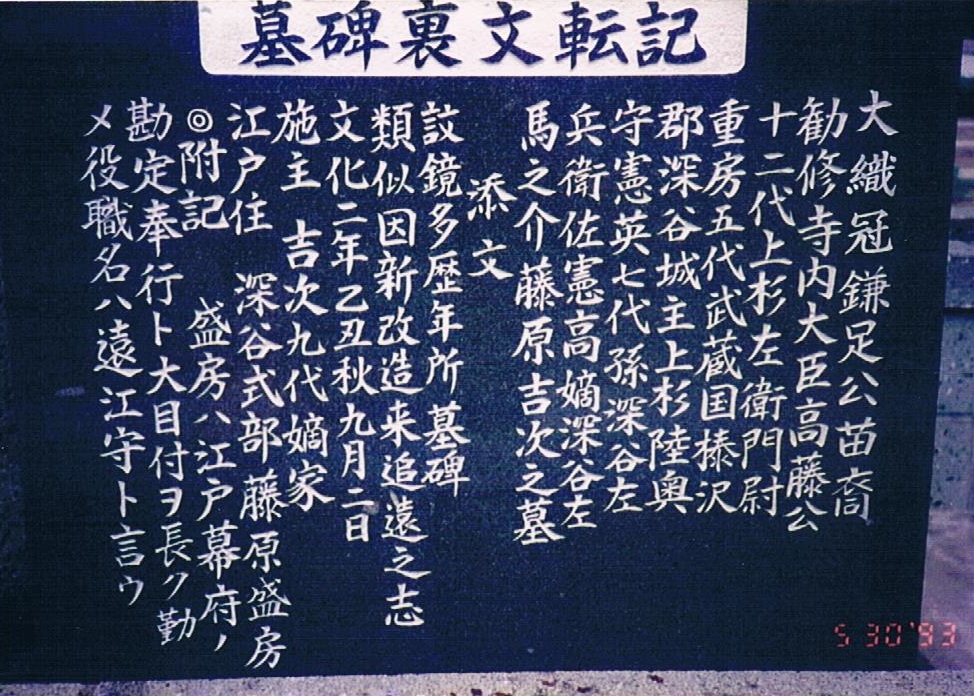 墓碑裏文転記
大織冠鎌足公苗裔
勧修寺内大臣高藤公
十二代上杉左衛門尉
重房五代武蔵国榛沢
郡深谷城主上杉陸奥
守憲英七代孫深谷左
兵衛佐憲高嫡深谷左
馬之介藤原吉次之墓
添文
銘鏡多歴年所墓碑
類似因新改造来追遠之志
文化二年乙丑秋九月二日
施主 吉次九代嫡家
江戸住 深谷式部藤原盛房
◎附記 盛房ハ江戸幕府ノ
勘定奉行ト大目付ヲ長ク勤
メ役職名ハ遠江守ト言ウ
5 30 '93